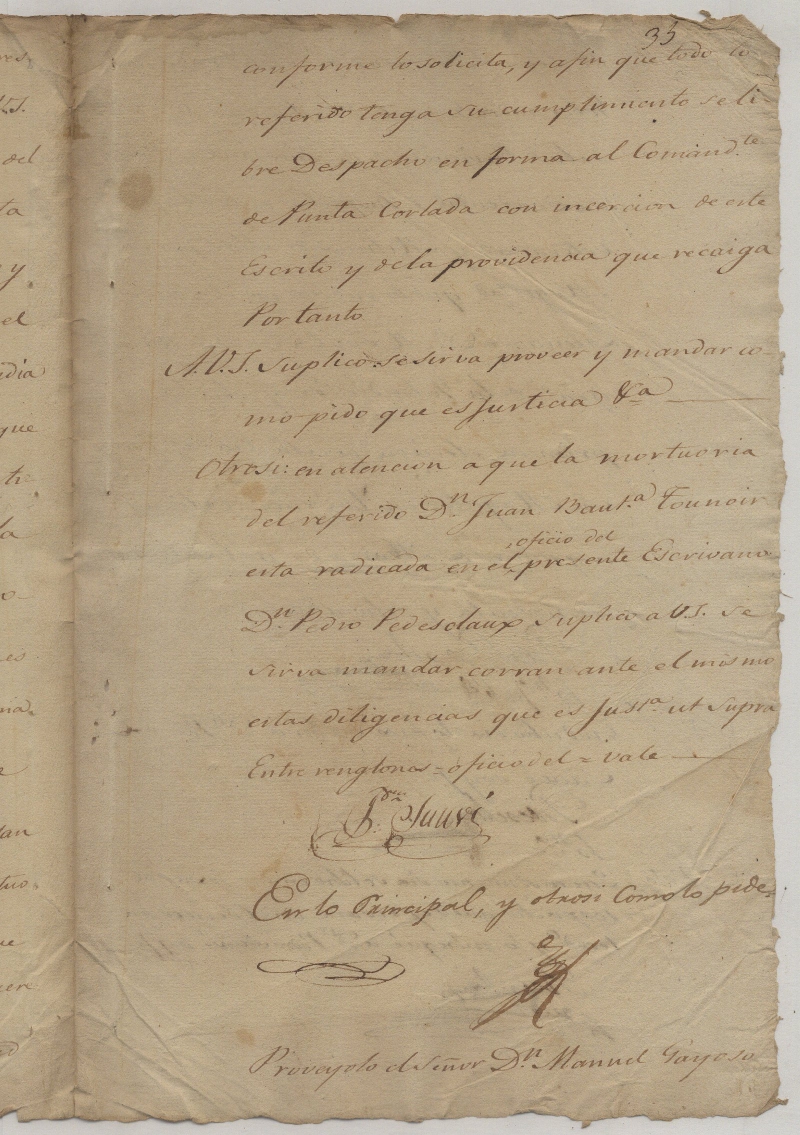 35
conforme lo solicita, y afin que todo lo
referido tenga su cumplimiento se li-
bre Despacho en forma al Comand.te
de Punta Cortada con incercion de este
Escrito y dela providencia que recaiga
Por tanto
A.V.S. Suplico se sirva proveer y mandar co-
mo pido que es Justicia &a
Otrosi: en atencion a que la mortuoria
del referido Dn. Juan Baut.a Tounoir
oficio del
esta radicada en el presente Escrivano
Dn. Pedro Pedesclaux suplico a V.S. se
sirva mandar corran ante el mismo
estas diligencias que es Just.a ut Supra
Entre renglones = oficio del = vale
En lo Principal, y otrosi Como lo pide=
Proveyolo el Señor Dn. Manuel Gayoso